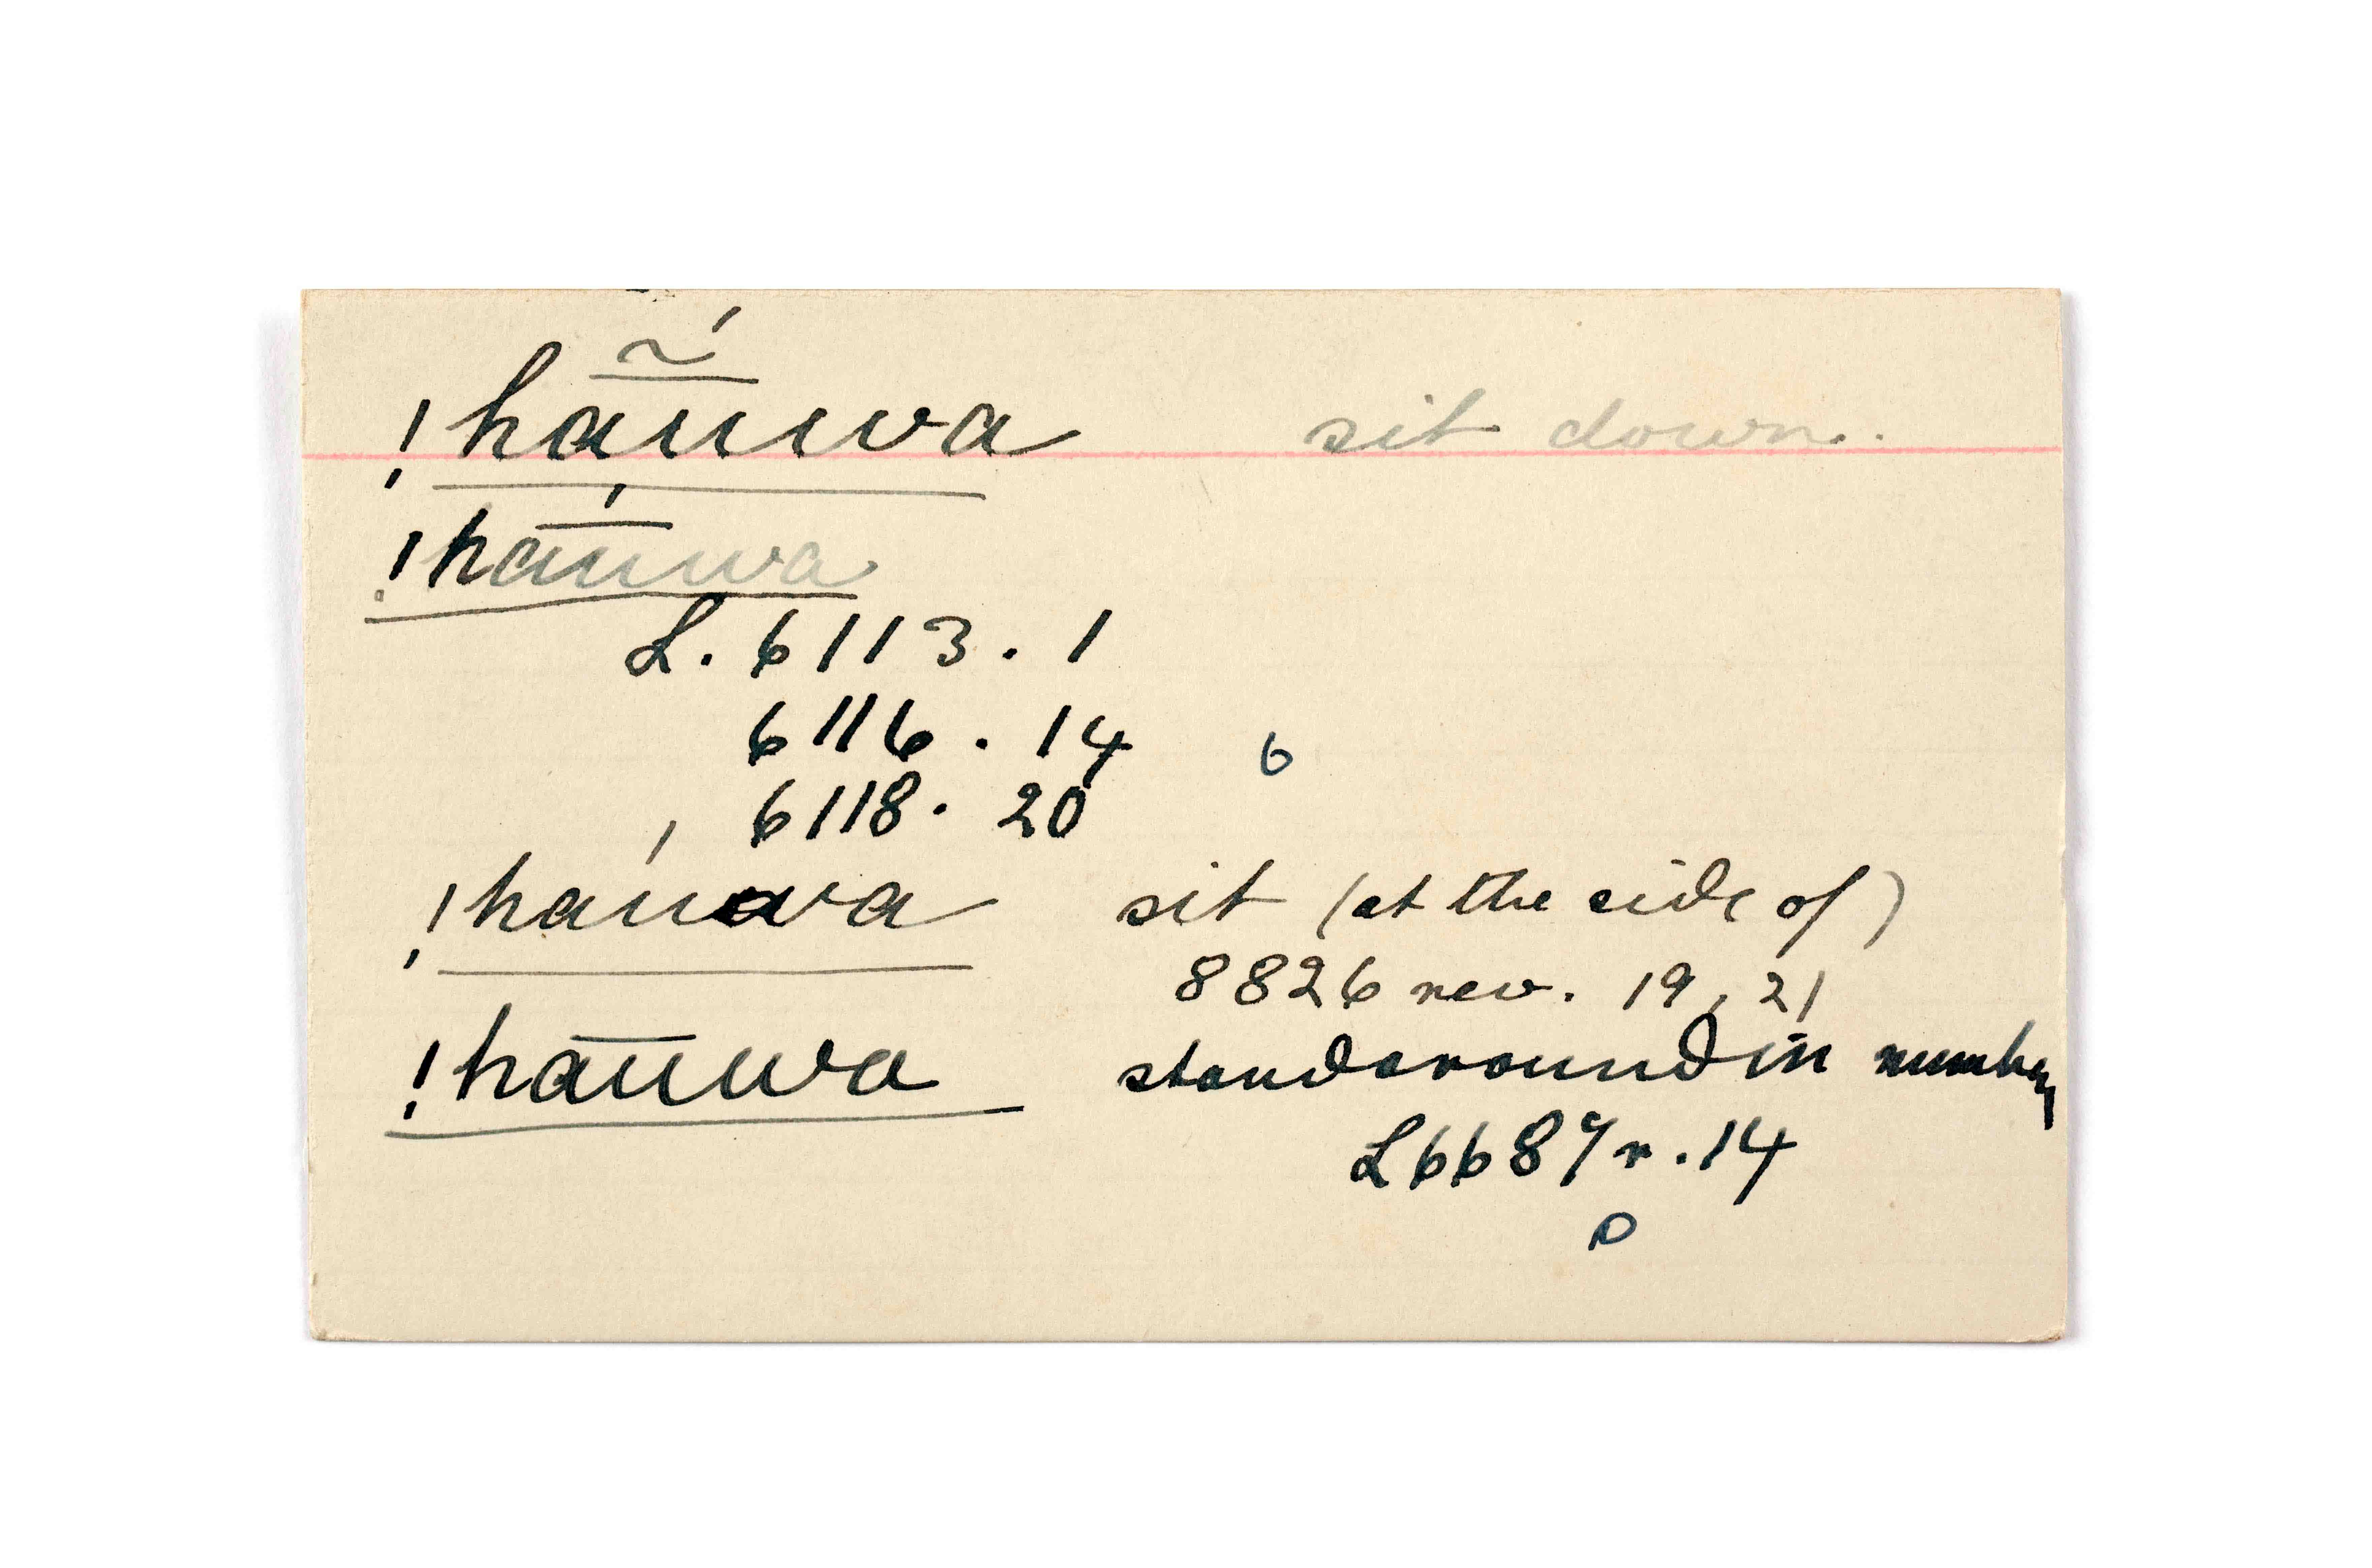 !hãúwa sit down.
!hāúwa
L. 6113. 1
6116. 14 6
6118. 20
!haúwa sit (at the side of)
8826 rev. 19, 21
!hāuwa stand around in number
L 6687 r. 14